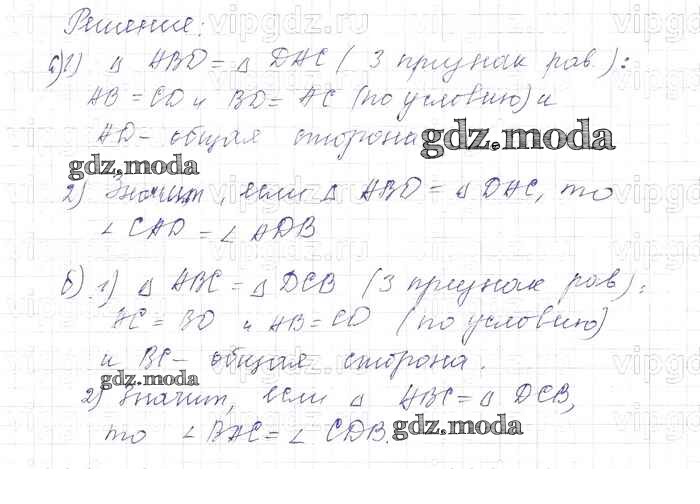 Решение:
а) 1) △ ABD = △ DAC (3 признак рав.):
AB = CD и BD = AC (по условию) и
AD - общая сторона
gdz.moda
gdz.moda
2) Значит, если △ ABD = △ DAC, то
∠ CAD = ∠ ADB
б) 1) △ ABC = △ DCB (3 признак рав):
AC = BD и AB = CD (по условию)
и BC - общая сторона.
gdz.moda
2) Значит, если △ ABC = △ DCB,
то ∠ BAC = ∠ CDB.
gdz.moda